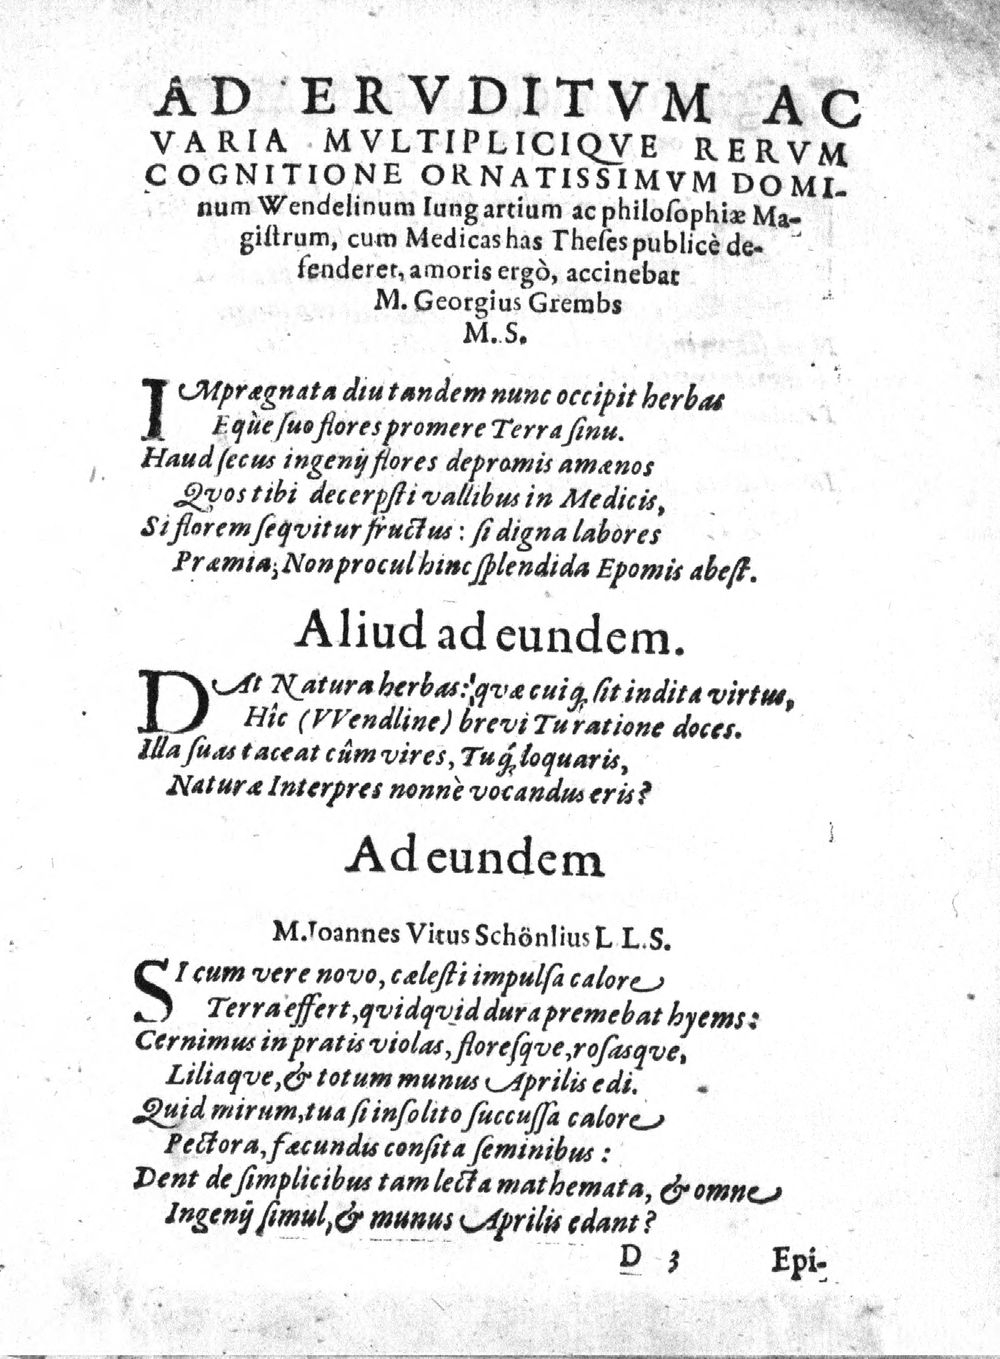 AD ERVDITVM AC
VARIA MVLTIPLICIQVE RERVM
COGNITIONE ORNATISSIMVM DOMI-
num Wendelinum Iung artium ac philoſophiæ Ma-
giſtrum, cum Medicas has Theſes publicè de-
fenderet, amoris ergò, accinebat
M. Georgius Grembs
M. S.
IMprægnata diu tandem nunc occipit herbas
Eq́ue ſuo flores promere Terra ſinu.
Haud ſecus ingenij flores depromis amænos
Qvos tibi decerpſti vallibus in Medicis,
Si florem ſeqvitur fructus: ſi digna labores
Præmia; Non procul hinc ſplendida Epomis abeſt.
Aliud ad eundem.
DAt Natura herbas: qvæ cuiq; ſit indita virtus,
Hîc (VVendline) brevi Tu ratione doces.
Illa ſuas taceat cûm vires, Tuq́; loquaris,
Naturæ Interpres nonnè vocandus eris?
Ad eundem
M. Ioannes Vitus Schönlius L L. S.
SI cum vere novo, cæleſti impulſa calore
Terra effert, qvidqvid dura premebat hyems:
Cernimus in pratis violas, floreſqve, roſasqve,
Liliaqve, & totum munus Aprilis edi.
Quid mirum, tua ſi inſolito ſuccuſſa calore
Pectora, fæcundis conſita ſeminibus:
Dent de ſimplicibus tam lecta mathemata, & omne
Ingenij ſimul, & munus Aprilis edant?
D 3 Epi-